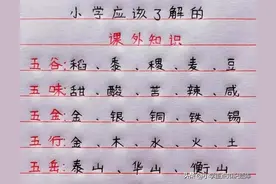 小学应该了解的
课外知识
五谷:稻、黍、稷、麦、豆
五味:甜、酸、苦、辣、咸
五金:金、银、铜、铁、锡
五行:金、木、水、火、土
五岳:泰山、华山、衡山